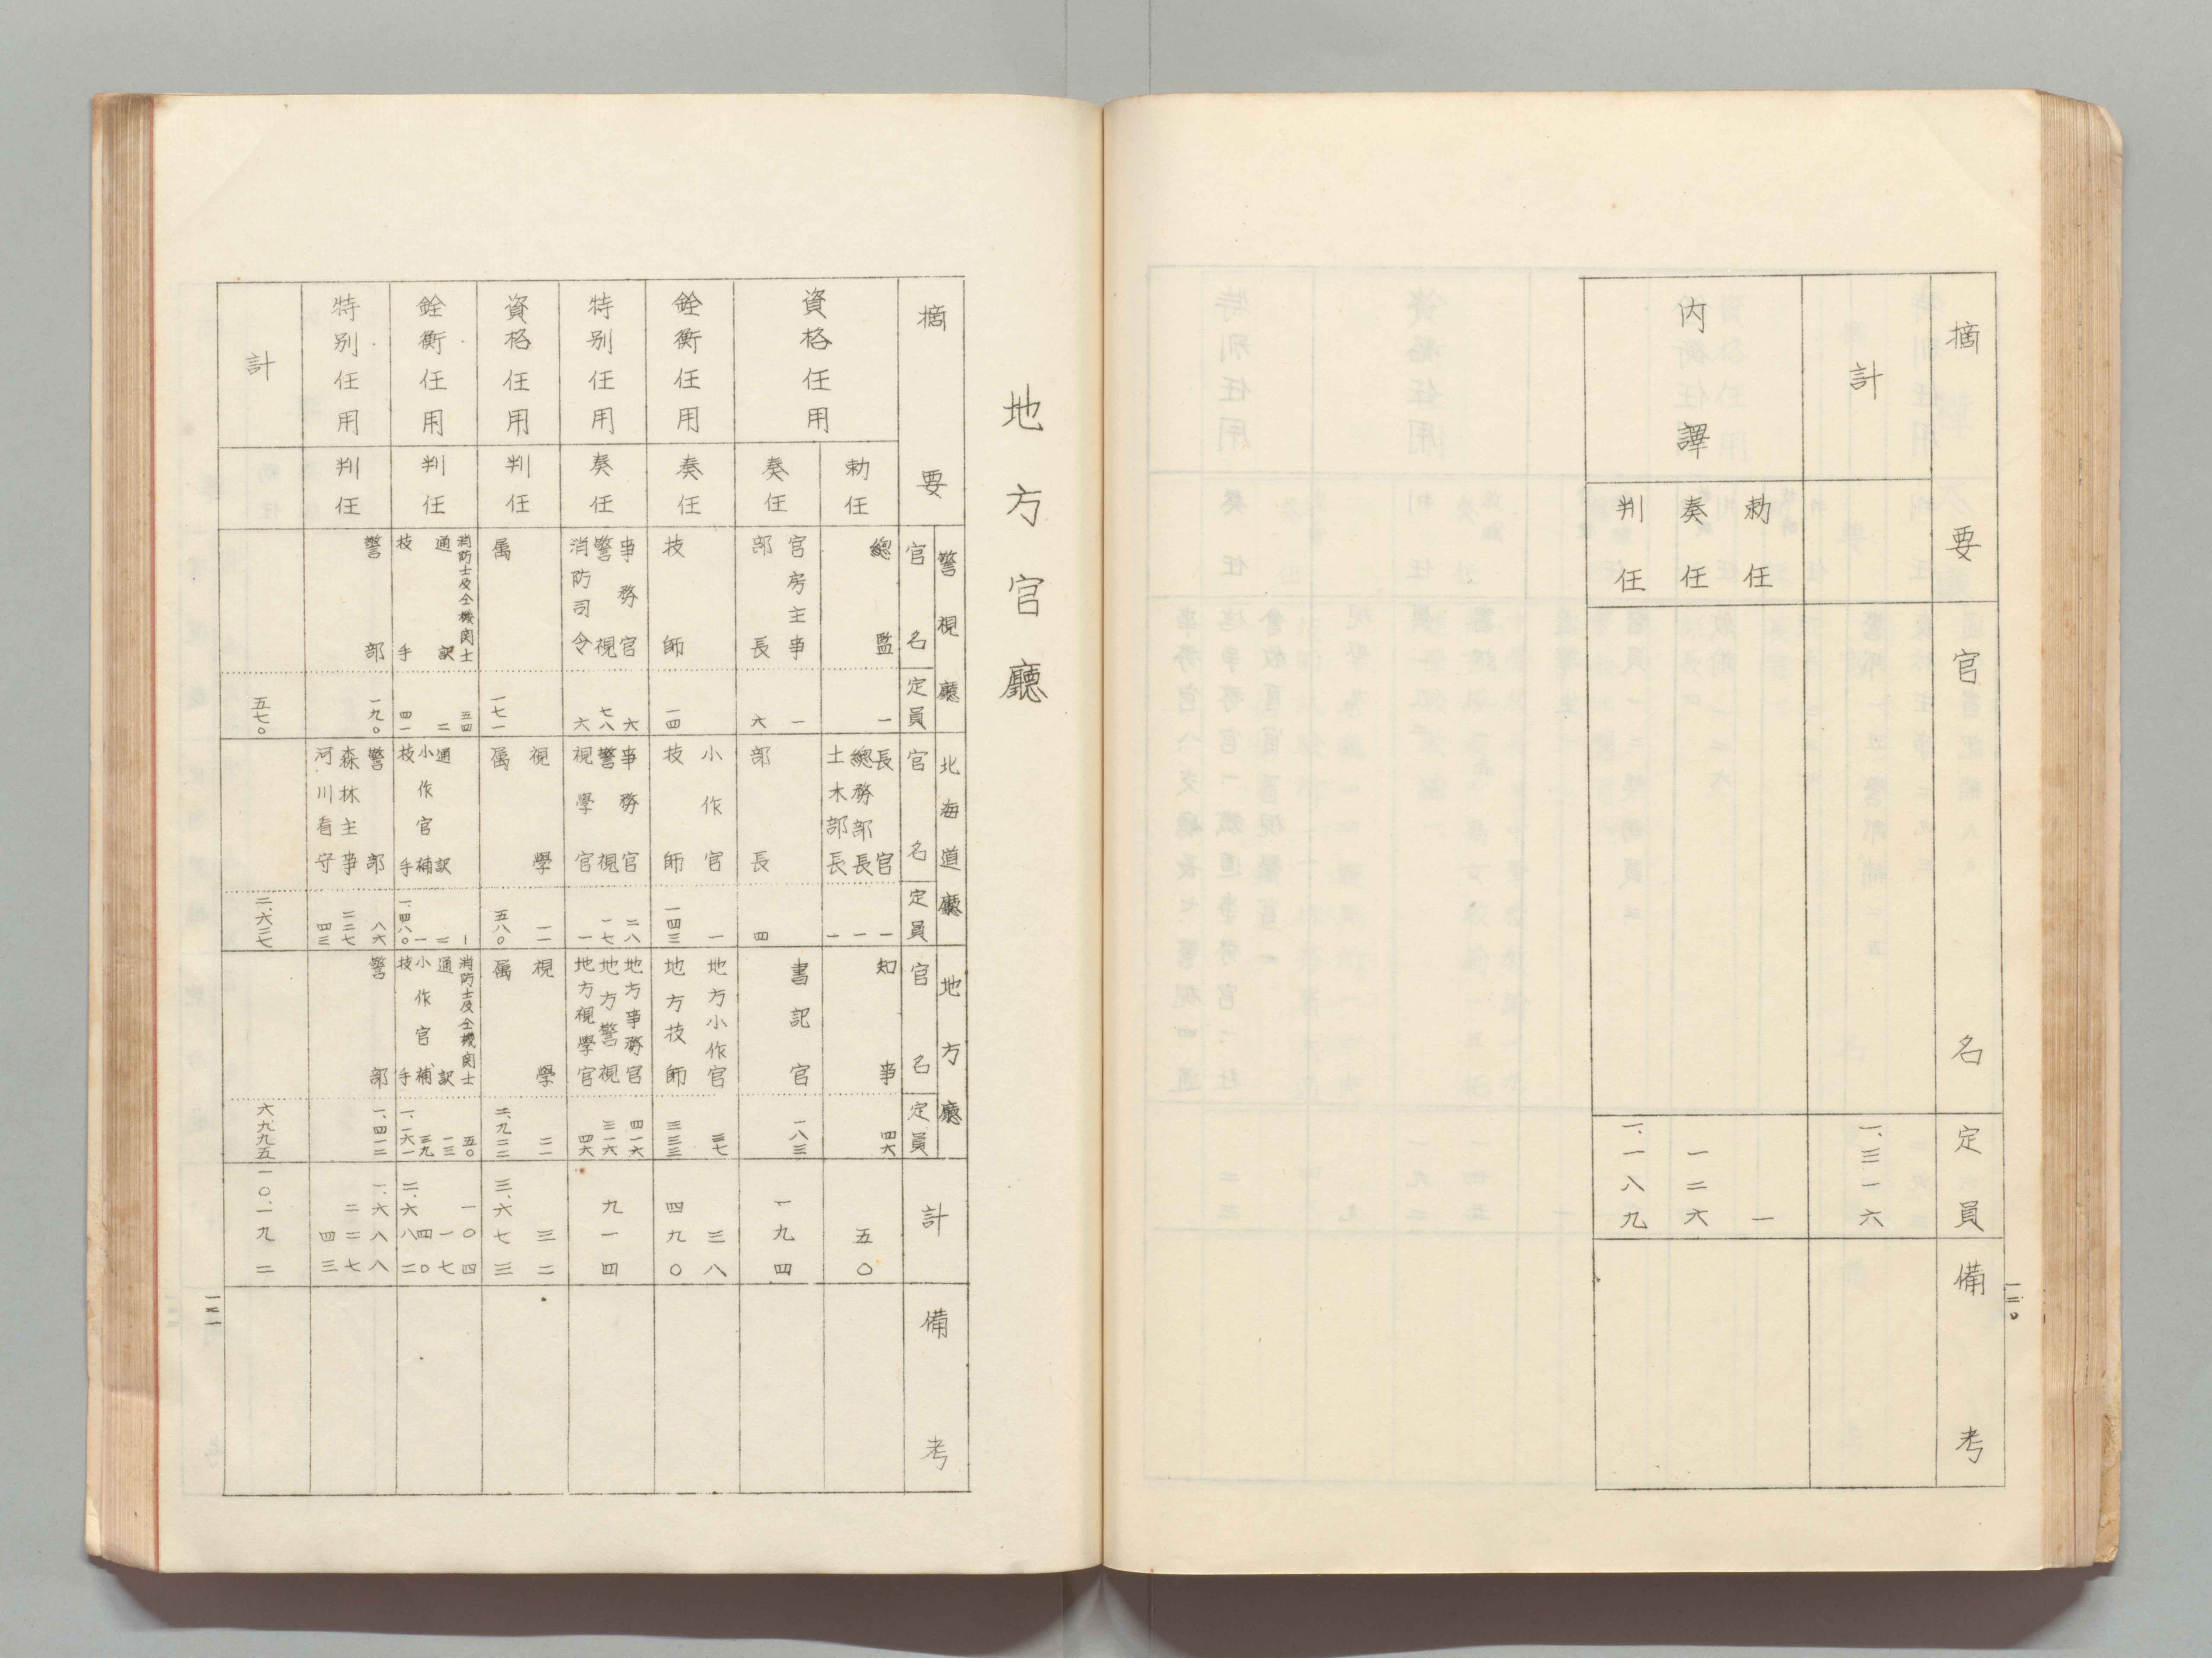 摘要 官名 定員 備考
計 一、三一六
内譯
勅任 一
奏任 一二六
判任 一、一八九
一三〇
地方官廳
摘要 警視廳 北海道廳 地方廳 計 備考
官名 定員 官名 定員 官名 定員
資格任用
勅任
總監 一
長官 一
總務部長 一
土木部長 一
知事 四六
五〇
奏任
官房主事 一
部長 六
部長 四
書記官 一八三
一九四
銓衡任用
奏任
技師 一四
小作官 一
技師 一四三
地方小作官 三七
地方技師 三三三
三八
四九〇
特别任用
奏任
事務官 六
警視 七八
消防司令 六
事務官 二八
警視 一七
視學官 一
地方事務官 四一六
地方警視 三一六
地方視學官 四六
九一四
資格任用
判任
属 一七一
視學 一一
属 五八〇
視學 二一
属 二、九二二
三二
三、六七三
銓衡任用
判任
消防士及仝機関士 五四
通訳 二
技手 四一
通訳 二
小作官補 一
技手 一、四八〇
消防士及仝機関士 五〇
通訳 一三
小作官補 三九
技手 一、一六一
一〇四
一七
四〇
二、六八二
特别任用
判任
警部 一九〇
警部 八六
森林主事 二二七
河川看守 四三
警部 一、四一二
一、六八八
二二七
四三
計 五七〇 二、六二七 六、九九五 一〇、一九二
一三一